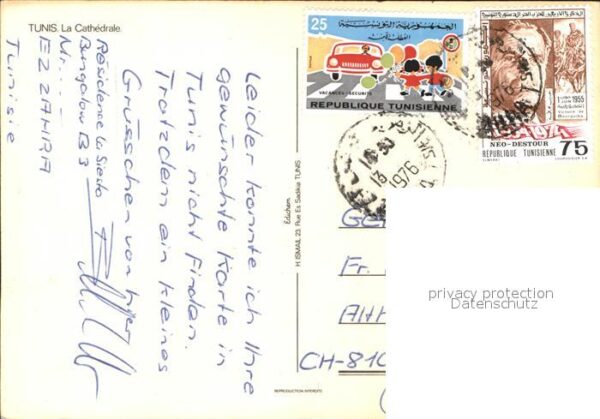 TUNIS. La Cathédrale.
Leider konnte ich Ihre
gewünschte Karte in
Tunis nicht finden.
Trotzdem ein kleines
Grüsschen von hier
Residence la Siesta
Bungalow B3
EZZAHRA
Tunisie
Edichem
H. ISMAIL 23. Rue Es Sadikia TUNIS
REPRODUCTION INTERDITE
25
الجمهورية التونسية
VACANCES-SECURITE
REPUBLIQUE TUNISIENNE
1976
1er JUIN 1955
NEO-DESTOUR
REPUBLIQUE TUNISIENNE
75
Fr.
CH-810
privacy protection
Datenschutz